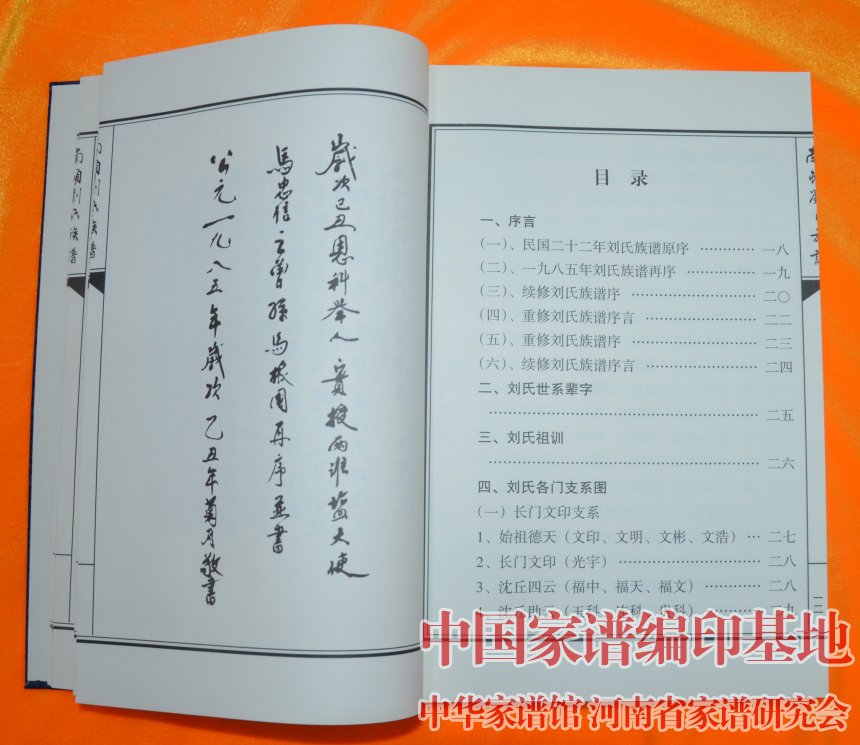 歲次己丑恩科舉人實授兩淮盐大使
馬忠信之曾孫馬振国再序並書
公元一九八五年歲次乙丑年菊月敬書
目 录
一、序言
（一）、民国二十二年刘氏族谱原序 ………… 一八
（二）、一九八五年刘氏族谱再序 ………… 一九
（三）、续修刘氏族谱序 ………… 二〇
（四）、重修刘氏族谱序言 ………… 二二
（五）、重修刘氏族谱序 ………… 二三
（六）、续修刘氏族谱序言 ………… 二四
二、刘氏世系辈字
………… 二五
三、刘氏祖训
………… 二六
四、刘氏各门支系图
（一）长门文印支系
1、始祖德天（文印、文明、文彬、文浩）… 二七
2、长门文印（光宇） ………… 二八
3、沈丘四云（福中、福天、福文）………… 二八
中国家谱编印基地
中华家谱馆 河南省家谱研究会